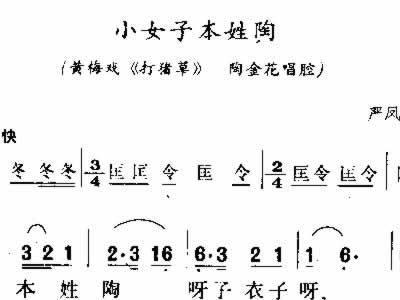 小女子本姓陶
(黄梅戏《打猪草》 陶金花唱腔)
严凤
快
冬 冬冬 | 3/4 匡匡 令 匡 令 | 2/4 匡令 匡令 |
3 2 1 | 2·3 16 | 6·3 2 1 | 1 6·
本 姓 陶 呀子 衣子 呀,